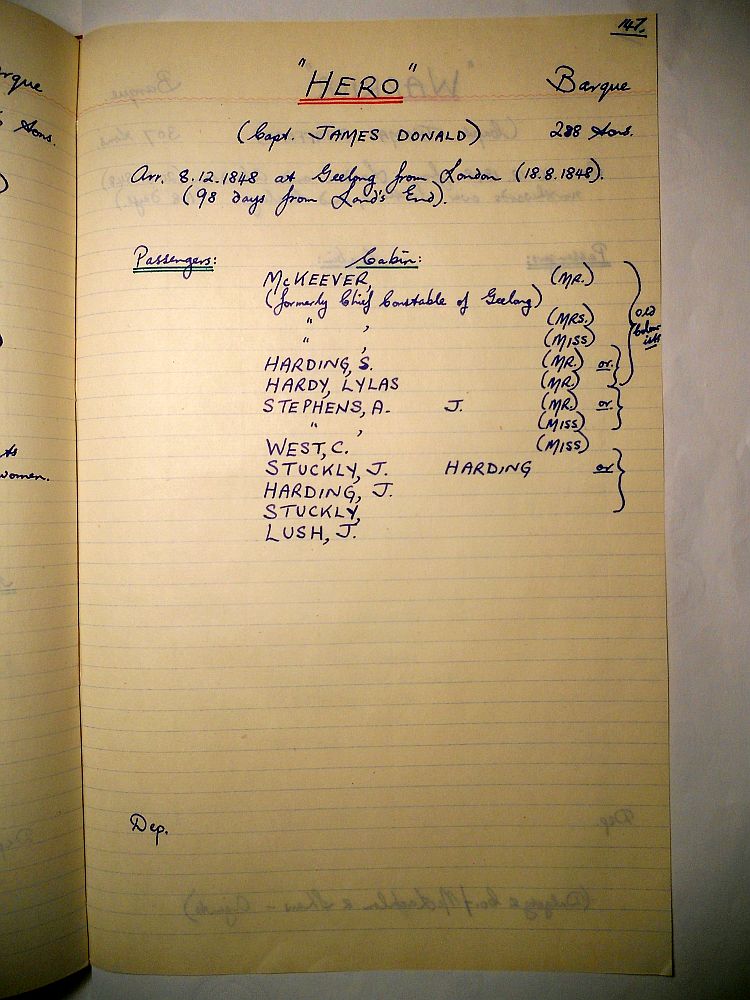 147.
"HERO" Barque
(Capt. JAMES DONALD) 288 tons.
Arr. 8.12.1848 at Geelong from London (18.8.1848).
(98 days from Land's End).
Passengers: Cabin:
McKEEVER, (MR.)
(formerly Chief Constable of Geelong)
" , (MRS.)
" , (MISS)
old colonists
HARDING, S. (MR.) or
HARDY, LYLAS (MR.)
STEPHENS, A. J. (MR.) or
" , (MISS)
WEST, C. (MISS)
STUCKLY, J. HARDING or
HARDING, J.
STUCKLY,
LUSH, J.
Dep.
rque
tons.
women.